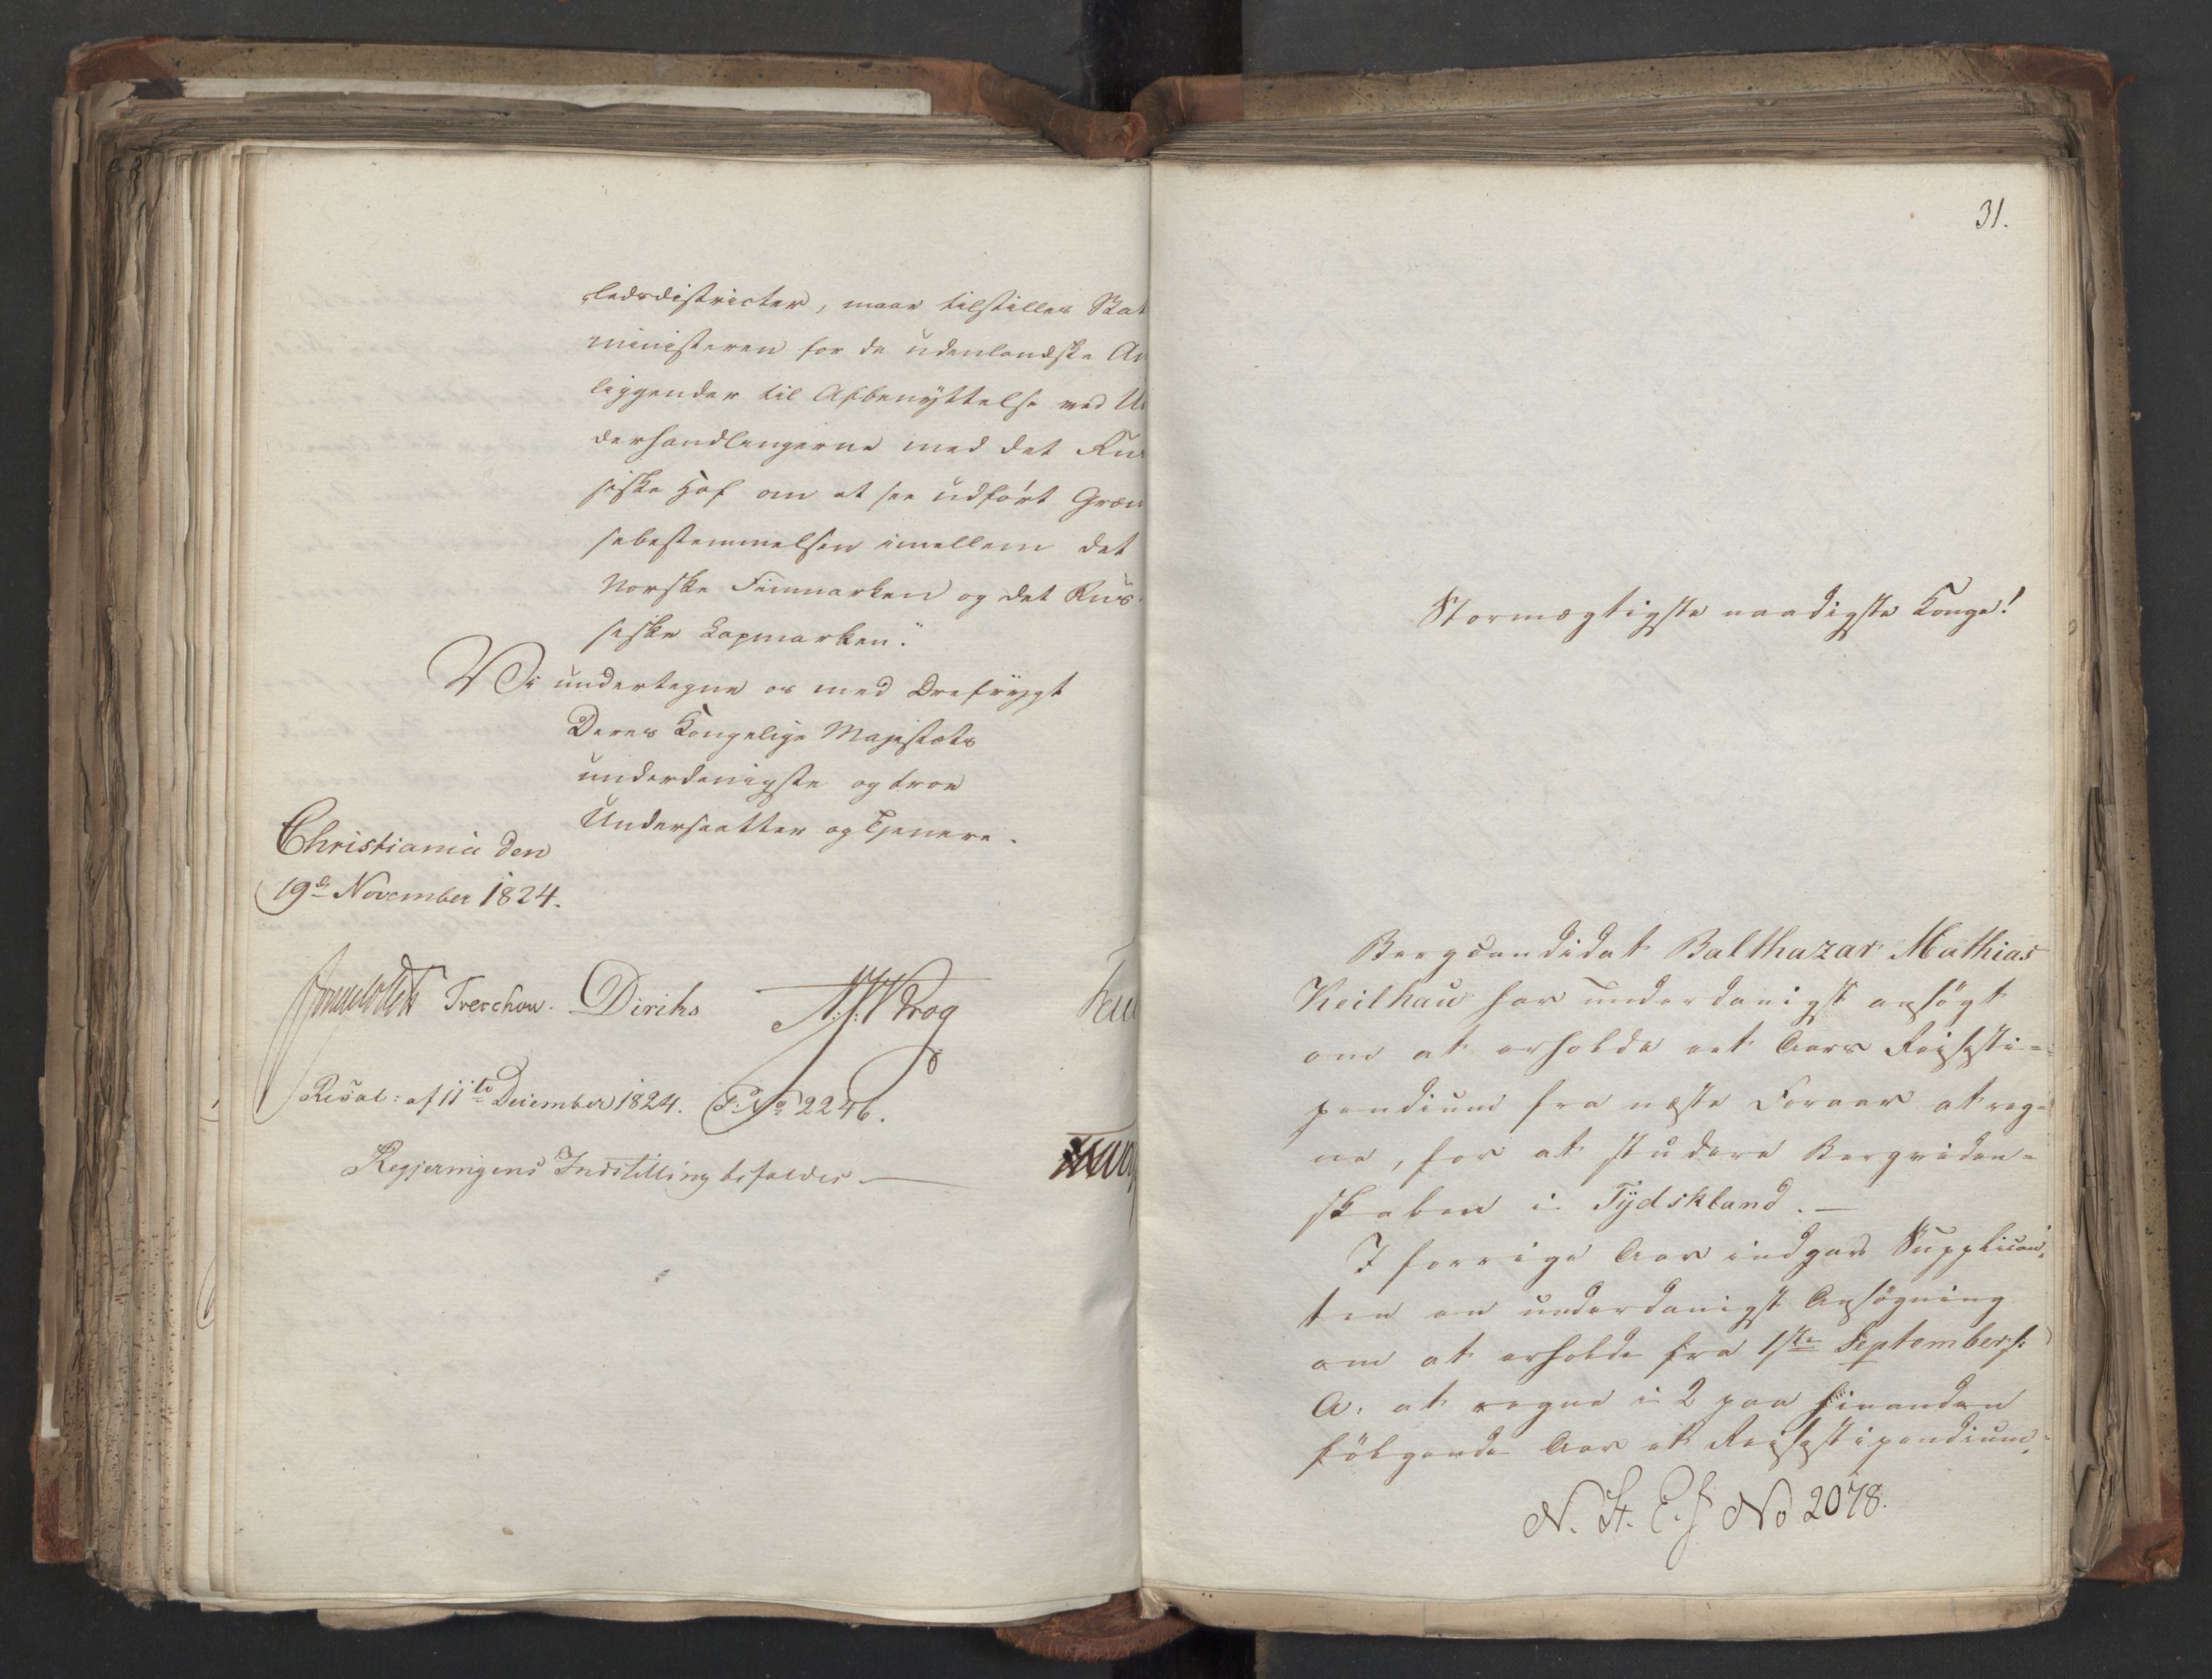 ledsdistricter, maae tilstilles Stat
ministeren for de udenlandske An
liggender til Afbenÿttelse ved Un
derhandlingerne med det Rus
siske Hof om at see udført Græn
sebestemmelsen imellem det
Norske Finmarken og det Rus-
siske Lapmarken."
Vi undertegne os med Ærefrÿgt
Deres Kongelige Majestæts
underdanigste og troe
Undersaatter og Tjenere.
Christiania den
19de November 1824.
Sommerhielm Treschow. Diriks N: J: Krog
Resol: af 11te December 1824. S: No 2246.
Regjeringens Indstilling bifaldes
31.
Stormægtigste naadigste Konge!
Bergcandidat Balthazar Mathias
Keilhau har underdanigst ansøgt
om at erholde eet Aars Reisesti=
pendium fra næste Foraar at reg=
ne, for at studere Bergviden=
skaben i Tÿdskland. —
I forrige Aar indgav Supplican=
ten en underdanigst Ansøgning
om at erholde fra 1ste September f:
A: at regne i 2 paa hinanden
følgende Aar et Reisestipendium,
N. St. E. f No 2078.